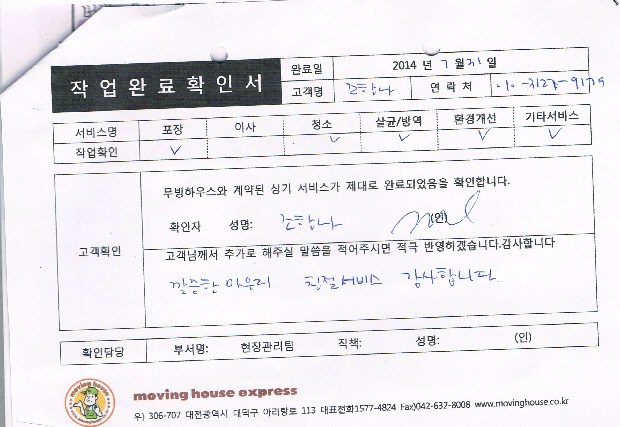 작업완료확인서
완료일 2014 년 7 월 31 일
고객명 조합나 연락처 010-3127-9179
서비스명 포장 이사 청소 살균/방역 환경개선 기타서비스
작업확인 ✓ ✓ ✓ ✓ ✓
고객확인
무빙하우스와 계약된 상기 서비스가 제대로 완료되었음을 확인합니다.
확인자 성명: 조합나 (인)
고객님께서 추가로 해주실 말씀을 적어주시면 적극 반영하겠습니다.감사합니다
깔끔한 마무리 친절서비스 감사합니다
확인담당 부서명: 현장관리팀 직책: 성명: (인)
moving house
moving house express
우) 306-707 대전광역시 대덕구 아리랑로 113 대표전화1577-4824 Fax)042-632-8008 www.movinghouse.co.kr